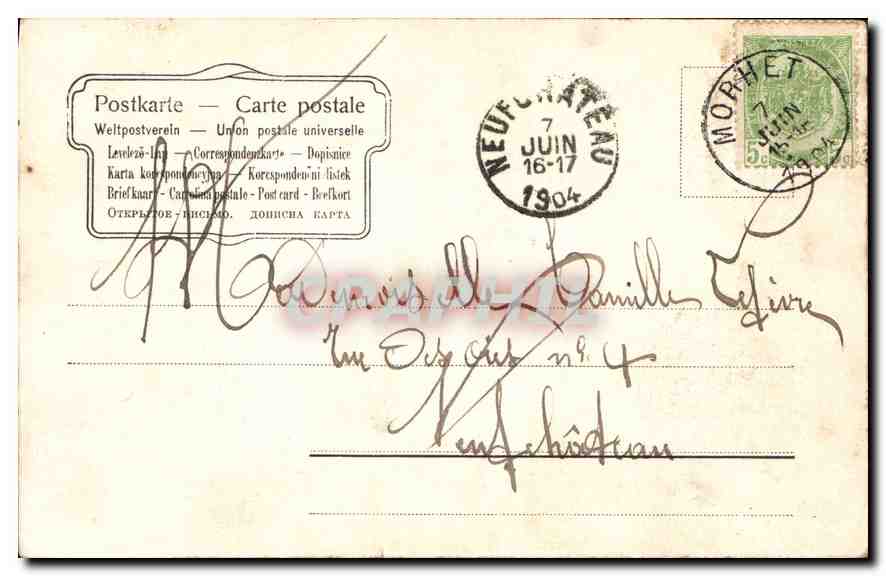 Postkarte — Carte postale
Weltpostverein — Union postale universelle
Levelező-Lap — Correspondenzkarte — Dopisnice
Karta korespondencyjna — Korespondenčni listek
Briefkaart - Cartolina postale - Post card - Brefkort
Открытое-письмо. дописна карта
NEUFCHATEAU
7
JUIN
16-17
1904
MORHET
7
JUIN
1904
5c
CPAPHIL
Mademoiselle Camille Lefèvre
rue n° 4
Neufchâteau